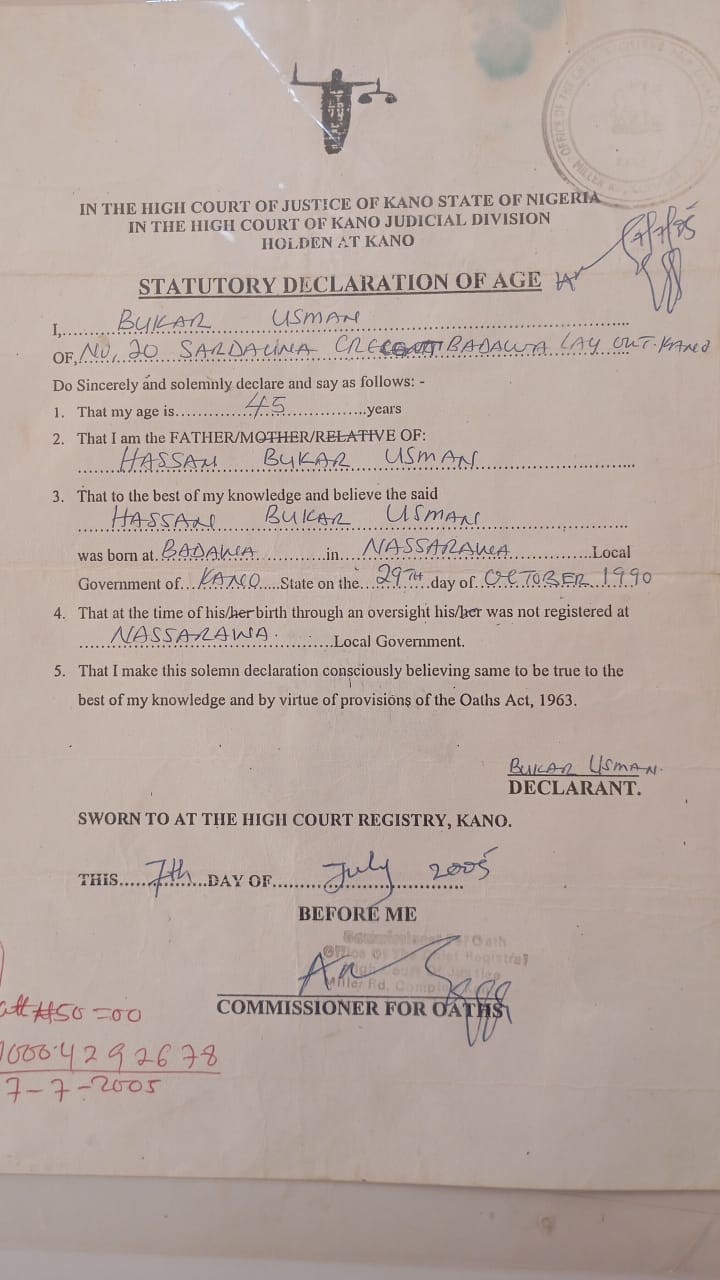 IN THE HIGH COURT OF JUSTICE OF KANO STATE OF NIGERIA
IN THE HIGH COURT OF KANO JUDICIAL DIVISION
HOLDEN AT KANO
7/7/05
STATUTORY DECLARATION OF AGE
I,......BUKAR USMAN......
OF, NO, 20 SARDAUNA CRESCENT BADAWA LAY OUT. KANO
Do Sincerely and solemnly declare and say as follows: -
1. That my age is......45......years
2. That I am the FATHER/MOTHER/RELATIVE OF:
......HASSAN BUKAR USMAN......
3. That to the best of my knowledge and believe the said
......HASSAN BUKAR USMAN......
was born at BADAWA......in...NASSARAWA......Local
Government of...KANO.....State on the...29TH.day of..OCTOBER 1990
4. That at the time of his/her birth through an oversight his/her was not registered at
......NASSARAWA.......Local Government.
5. That I make this solemn declaration consciously believing same to be true to the
best of my knowledge and by virtue of provisions of the Oaths Act, 1963.
BUKAR USMAN.
DECLARANT.
SWORN TO AT THE HIGH COURT REGISTRY, KANO.
THIS.....7th.....DAY OF......July 2005
BEFORE ME
COMMISSIONER FOR OATHS
₦50=00
4292678
7-7-2005